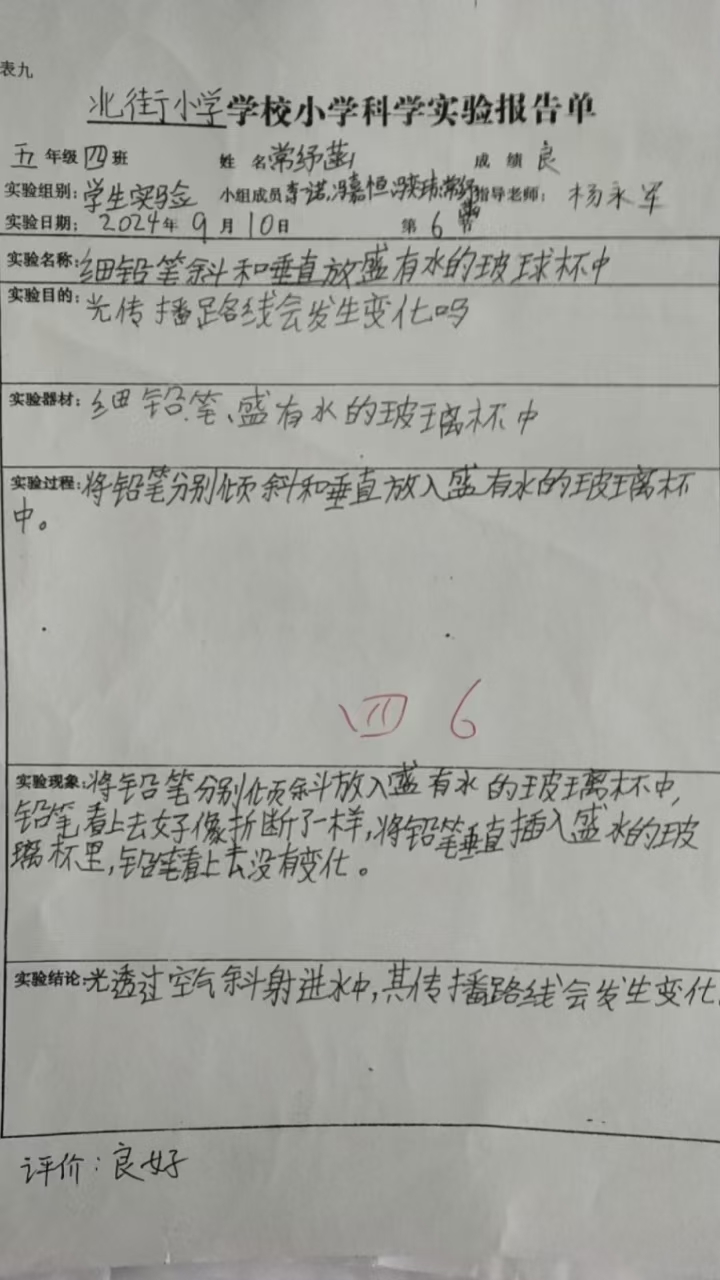 表九
北街小学学校小学科学实验报告单
五年级四班 姓名常纾菡 成绩良
实验组别:学生实验 小组成员李诺,冯嘉恒,冯奕玮,常纾菡指导老师:杨永军
实验日期:2024年9月10日 第6节
实验名称:细铅笔斜和垂直放盛有水的玻球杯中
实验目的:光传播路线会发生变化吗
实验器材:细铅笔、盛有水的玻璃杯中
实验过程:将铅笔分别倾斜和垂直放入盛有水的玻璃杯
中。
四 6
实验现象:将铅笔分别倾斜放入盛有水的玻璃杯中,
铅笔看上去好像折断了一样,将铅笔垂直插入盛水的玻
璃杯里,铅笔看上去没有变化。
实验结论:光透过空气斜射进水中,其传播路线会发生变化.
评价:良好